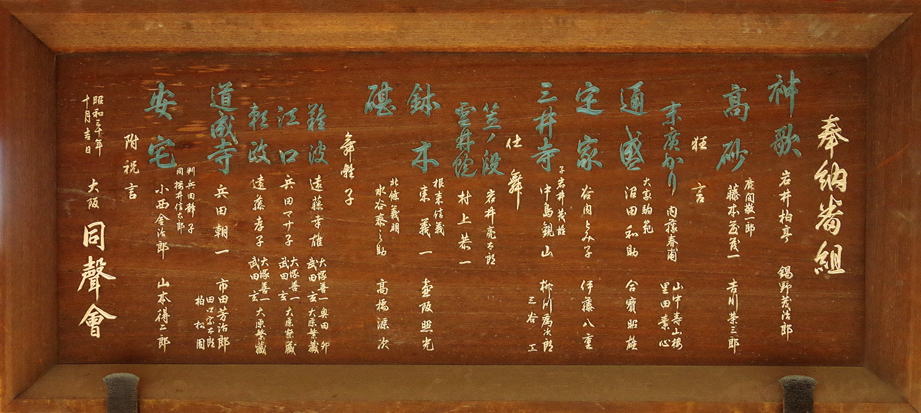 奉納番組
神歌 岩井柏亭 錫野芳治郎
高砂 廣岡敬一郎 藤本茂 吉川荣三郎
狂言
末廣かり 内藤春浦 山中寿山楼 里田素心
通盛 大家駒苑 沼田和助 合寳昭雄
定家 谷内とみ子 伊藤八重
三井寺 子岩井茂 中島観山 柳川 三谷工
仕舞
笠ノ段 岩井亮太郎
雲井院 村上恭一
鉢木 根来信義 東義一 壷阪照光
碪 北條義朗 水谷泰之助 高橋源次
舞囃子
難波 遠藤幸雄 大塚善一 武田玄 奥田卯 大原繁藏
江口 兵田マサ子 大塚善一 武田玄 大原繁藏
頼政 遠藤孝子 大塚善一 武田玄 大原繁藏
道成寺 兵田朝一 市田芳治郎 柏松園
安宅 判兵田静子 同橋井信太郎 小西金治郎 山本得二郎
附祝言
大阪 同聲會
昭和三十年
十月吉日